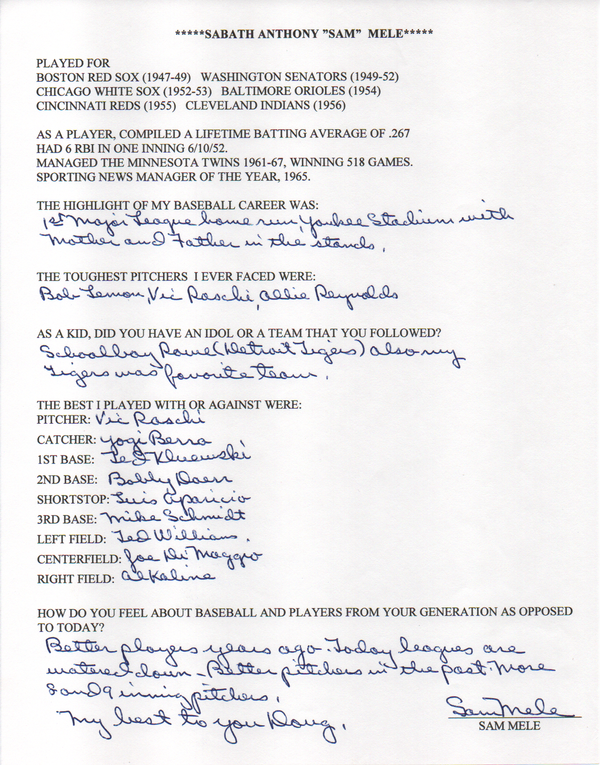 *****SABATH ANTHONY "SAM" MELE*****
PLAYED FOR
BOSTON RED SOX (1947-49) WASHINGTON SENATORS (1949-52)
CHICAGO WHITE SOX (1952-53) BALTIMORE ORIOLES (1954)
CINCINNATI REDS (1955) CLEVELAND INDIANS (1956)
AS A PLAYER, COMPILED A LIFETIME BATTING AVERAGE OF .267
HAD 6 RBI IN ONE INNING 6/10/52.
MANAGED THE MINNESOTA TWINS 1961-67, WINNING 518 GAMES.
SPORTING NEWS MANAGER OF THE YEAR, 1965.
THE HIGHLIGHT OF MY BASEBALL CAREER WAS:
1st Major League home run, Yankee Stadium with
Mother and Father in the stands.
THE TOUGHEST PITCHERS I EVER FACED WERE:
Bob Lemon, Vic Raschi, Allie Reynolds
AS A KID, DID YOU HAVE AN IDOL OR A TEAM THAT YOU FOLLOWED?
Schoolboy Rowe (Detroit Tigers) also my
Tigers was favorite team.
THE BEST I PLAYED WITH OR AGAINST WERE:
PITCHER: Vic Raschi
CATCHER: Yogi Berra
1ST BASE: Ted Kluewski
2ND BASE: Bobby Doerr
SHORTSTOP: Luis Aparicio
3RD BASE: Mike Schmidt
LEFT FIELD: Ted Williams.
CENTERFIELD: Joe Di Maggio
RIGHT FIELD: Al Kaline
HOW DO YOU FEEL ABOUT BASEBALL AND PLAYERS FROM YOUR GENERATION AS OPPOSED
TO TODAY?
Better players years ago. Today leagues are
watered down - Better pitchers in the past. More
8 and 9 inning pitchers.
My best to you Doug.
Sam Mele
SAM MELE